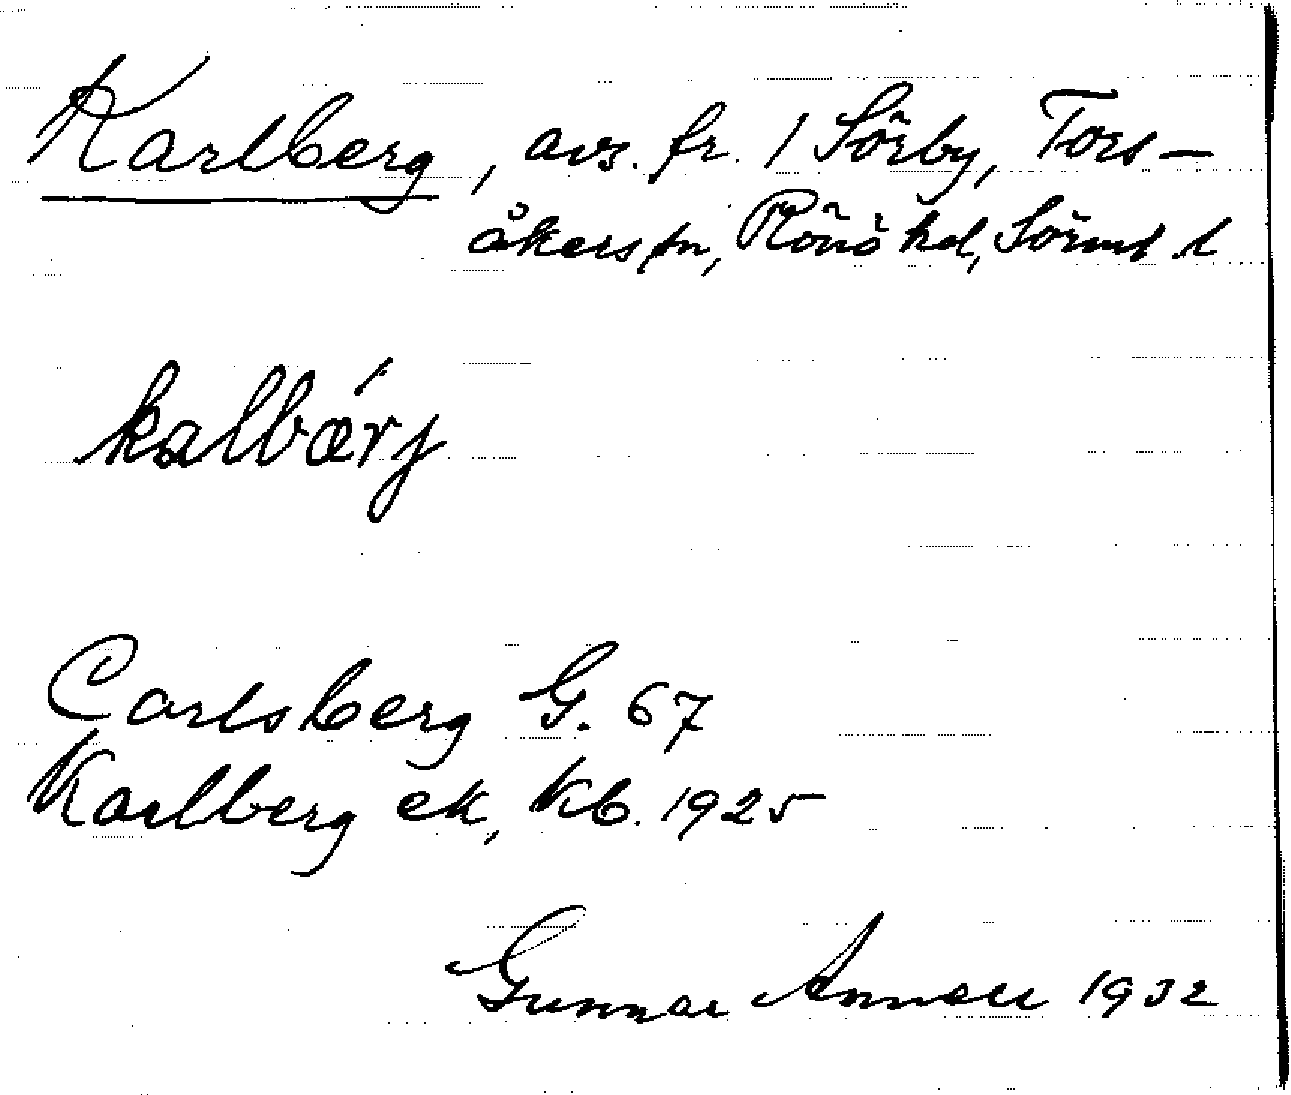 Karlberg, avs. fr. 1 Sörby, Tors-
åkers sn, Rönö hd, Sörml. l
kalbærj
Carlsberg G. 67
Karlberg ek, Kb. 1925
Gunnar 1932